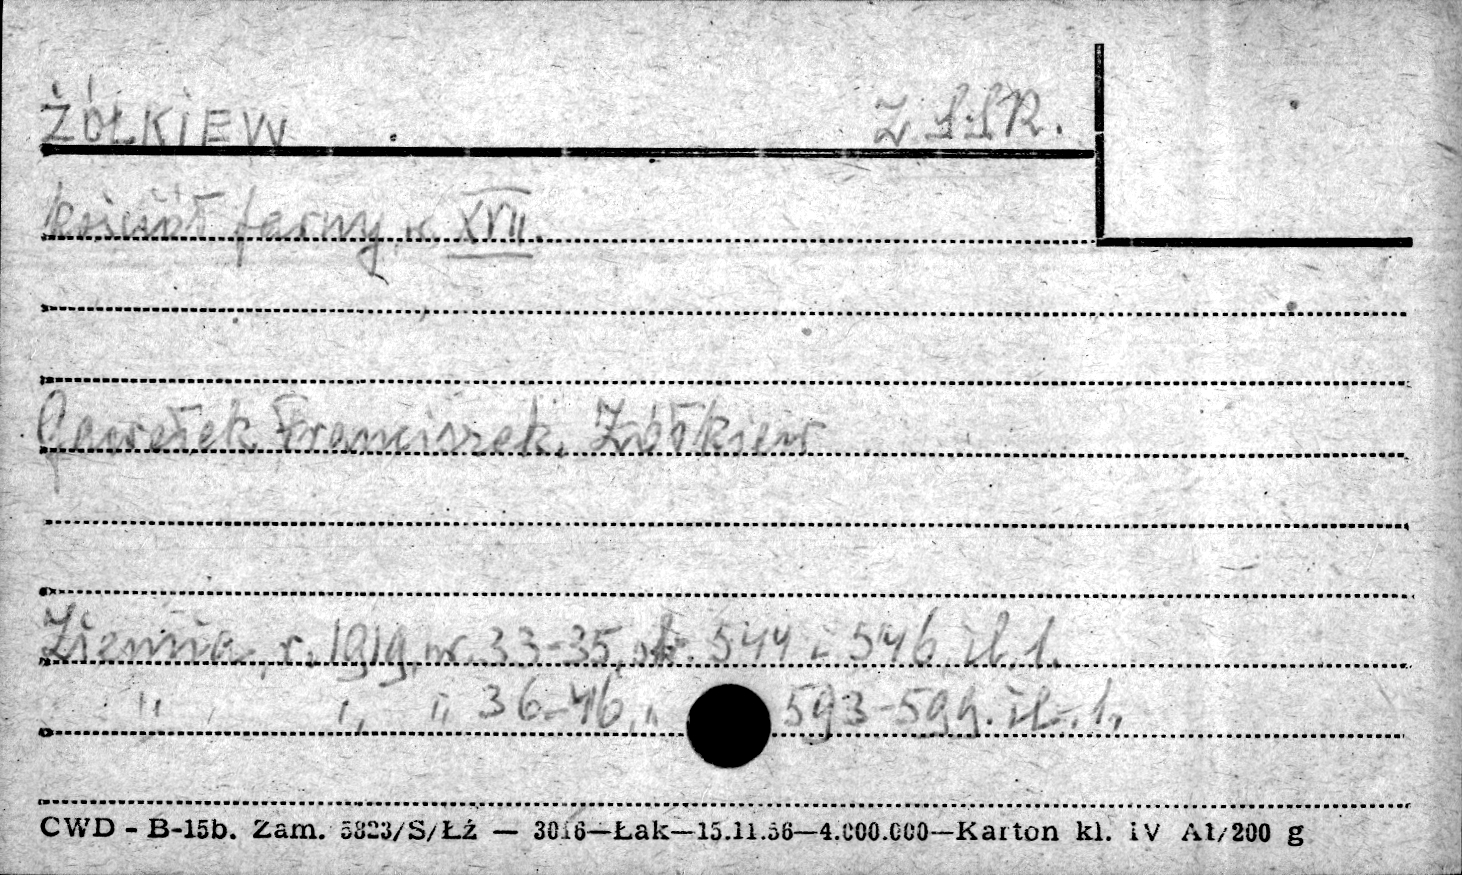 ŻÓŁKIEW Z.S.S.R.
kościół farny w. XVII.
Gawełek Franciszek, Żółkiew
Ziemia, r. 1919, nr. 33-35, str. 544 i 546 il. 1.
" " " 36-46, " 593-599. il. 1.
CWD - B-15b. Zam. 5823/S/Łź — 3016—Łak—15.11.56—4.000.000—Karton kl. IV A1/200 g